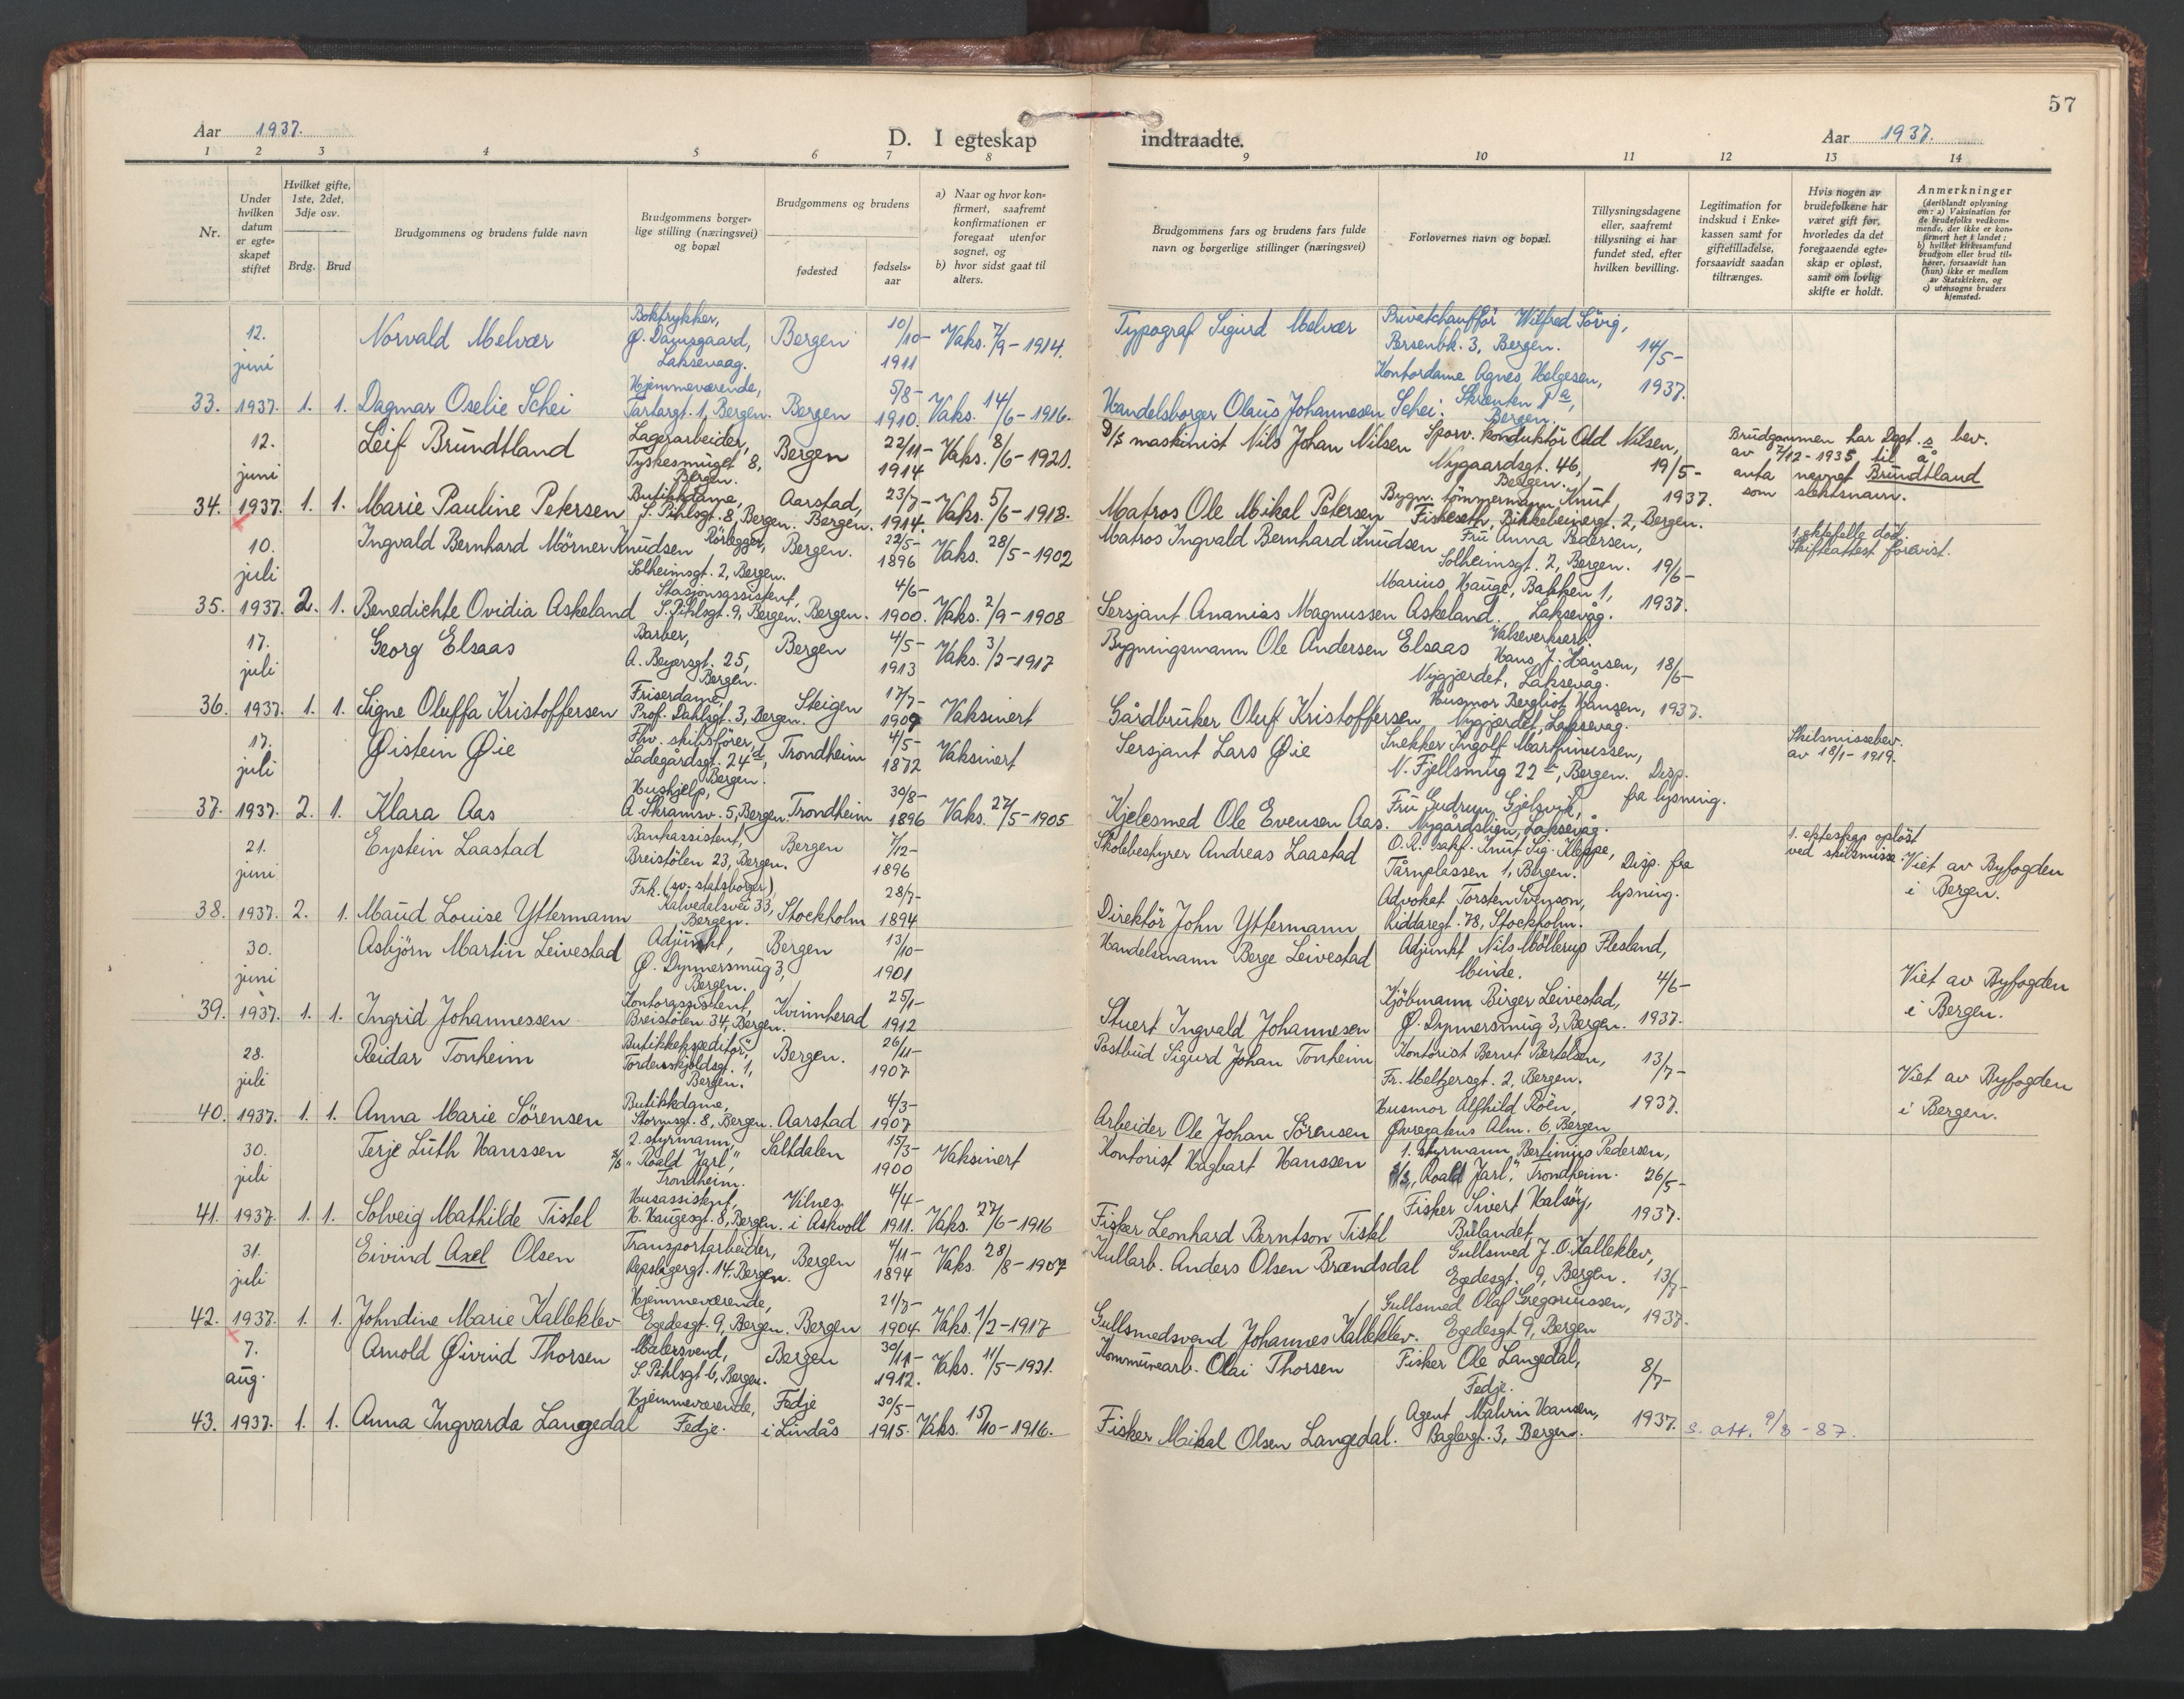 57
Aar 1937.
D. I egteskap
indtraadte.
Aar 1937.
1 2 3 4 5 6 7 8 9 10 11 12 13 14
Nr.
Under hvilken datum er egteskapet stiftet
Hvilket gifte, 1ste, 2det, 3dje osv.
Brdg. Brud
Brudgommens og brudens fulde navn
Brudgommens borgerlige stilling (næringsvei) og bopæl
Brudgommens og brudens
fødested
fødselsaar
a) Naar og hvor konfirmert, saafremt konfirmationen er foregaat utenfor sognet, og
b) hvor sidst gaat til alters.
Brudgommens fars og brudens fars fulde navn og borgerlige stillinger (næringsvei)
Forlovernes navn og bopæl.
Tillysningsdagene eller, saafremt tillysning ei har fundet sted, efter hvilken bevilling.
Legitimation for indskud i Enkekassen samt for giftetilladelse, forsaavidt saadan tiltrænges.
Hvis nogen av brudefolkene har været gift før, hvorledes da det foregaaende egteskap er opløst, samt om lovlig skifte er holdt.
Anmerkninger (deriblandt oplysning om: a) Vaksination for de brudefolks vedkommende, der ikke er konfirmert her i landet; b) hvilket kirkesamfund brudgom eller brud tilhører, forsaavidt han (hun) ikke er medlem av Statskirken, og c) utensogns bruders hjemsted.
12. juni Norvald Melvær Boktrykker, Ø. Damsgaard, Laksevaag. Bergen 10/10-1911 Vaks. 7/9-1914. Typograf Sigurd Melvær Privatchauffør Wilfred Sövig, Persenbk. 3, Bergen. 14/5-
33. 1937. 1. 1. Dagmar Oselie Schei Hjemmeværende, Tartargt. 1, Bergen. Bergen 5/8-1910. Vaks. 14/6-1916. Handelsborger Olaus Johannesen Schei. Kontordame Agnes Helgesen, Skrenten 7a, Bergen. 1937.
12. juni Leif Brundtland Lagerarbeider, Tyskesmuget 8, Bergen. Bergen 22/11-1914 Vaks. 8/6-1920. D/S maskinist Nils Johan Nilsen Sporv. konduktör Odd Nilsen, Nygaardsgt. 46, Bergen. 19/5- Brudgommen har Dept. s bev. av 7/12-1935 til å anta navnet Brundtland som slektsnavn.
34. 1937. 1. 1. Marie Pauline Petersen Butikkdame, S. Pihlsgt. 8, Bergen. Aarstad, Bergen. 23/7-1914. Vaks. 5/6-1918. Matros Ole Mikal Petersen Bygn. tömmermann Knut Fiskeseth, Birkebeinergt. 2, Bergen. 1937.
10. juli Ingvald Bernhard Mörner Knudsen Rörlegger, Solheimsgt. 2, Bergen. Bergen. 22/5-1896 Vaks. 28/5-1902 Matros Ingvald Bernhard Knudsen Fru Anna Pedersen, Solheimsgt. 2, Bergen. 19/6- 1. ektefelle död. Skifteattest forevist.
35. 1937. 2. 1. Benedichte Ovidia Askeland Stasjonsassistent, S. Pihlsgt. 9, Bergen. Bergen. 4/6-1900. Vaks. 2/9-1908 Sersjant Ananias Magnussen Askeland. Marius Hauge, Bakken 1, Laksevåg. 1937.
17. juli Georg Elsaas Barber, A. Beyersgt. 25, Bergen. Bergen 4/5-1913 Vaks. 3/2-1917 Bygningsmann Ole Andersen Elsaas Valseverksarb. Hans J. Hansen, Nygjerdet, Laksevåg. 18/6-
36. 1937. 1. 1. Signe Oluffa Kristoffersen Friserdame, Prof. Dahlsgt. 3, Bergen. Steigen 17/7-1909 Vaksinert Gårdbruker Oluf Kristoffersen Husmor Bergliot Hansen, Nygjerdet, Laksevåg. 1937.
17. juli Øistein Øie Fhv. skibsförer, Ladegårdsgt. 24d, Bergen. Trondheim 4/5-1872 Vaksinert Sersjant Lars Øie Snekker Ingolf Marthinussen, N. Fjellsmug 22b, Bergen. Disp. fra lysning. Skilsmissebev. av 18/1-1919.
37. 1937. 2. 1. Klara Aas Hushjelp, A. Skramsv. 5, Bergen. Trondheim 30/8-1896 Vaks. 27/5-1905 Kjelesmed Ole Evensen Aas. Fru Gudrun Gjelsvik, Nygårdslien, Laksevåg.
21. juni Eystein Laastad Bankassistent, Breistölen 23, Bergen. Bergen 7/12-1896 Skolebestyrer Andreas Laastad O.R. sakf. Knut Sig. Kleppe, Tårnplassen 1, Bergen. Disp. fra lysning. 1. ekteskap oplöst ved skilsmisse. Viet av Byfogden i Bergen.
38. 1937. 2. 1. Maud Louise Yttermann Frk. (sv. statsborger) Kalvedalsvei 33, Bergen. Stockholm 28/7-1894 Direktör John Yttermann Advokat Torsten Svenson, Riddaregt. 78, Stockholm.
30. juni Asbjörn Martin Leivestad Adjunkt, Ø. Dynnersmug 3, Bergen. Bergen 13/10-1901 Handelsmann Berge Leivestad Adjunkt Nils Möllerup Flesland, Minde. 4/6- Viet av Byfogden i Bergen.
39. 1937. 1. 1. Ingrid Johannessen Kontorassistent, Breistölen 34, Bergen. Kvinnherad 25/1-1912 Stuert Ingvald Johannesen Kjöbmann Birger Leivestad, Ø. Dynnersmug 3, Bergen. 1937.
28. juli Reidar Tonheim Butikkekspeditör, Tordenskjoldsgt. 1, Bergen. Bergen. 26/11-1907 Postbud Sigurd Johan Tonheim Kontorist Bernt Bertelsen, Fr. Meltzersgt. 2, Bergen. 13/7- Viet av Byfogden i Bergen.
40. 1937. 1. 1. Anna Marie Sörensen Butikkdame, Stormsgt. 8, Bergen. Aarstad 4/3-1907 Arbeider Ole Johan Sörensen Husmor Alfhild Röen, Øvregatens Alm. 6, Bergen 1937.
30. juli Terje Luth Hanssen 2. styrmann, s/s "Roald Jarl", Trondheim. Saltdalen 15/3-1900 Vaksinert Kontorist Hagbart Hanssen 1. styrmann Bertinius Pedersen, s/s "Roald Jarl", Trondheim. 26/5-
41. 1937. 1. 1. Solveig Mathilde Tistel Husassistent, H. Haugesgt. 8, Bergen. Vilnes i Askvoll 4/4-1911. Vaks. 27/6-1916 Fisker Leonhard Berntson Tistel Fisker Sivert Halsöy, Bulandet. 1937.
31. juli Eivind Axel Olsen Transportarbeider, Repslagergt. 14, Bergen. Bergen 4/11-1894 Vaks. 28/8-1907 Kullarb. Anders Olsen Brændsdal Gullsmed J. O. Kalleklev, Egedesgt. 9, Bergen. 13/7-
42. 1937. 1. 1. Johndine Marie Kalleklev Hjemmeværende, Egedesgt. 9, Bergen. Bergen 21/7-1904. Vaks. 1/2-1917 Gullsmedsvend Johannes Kalleklev. Gullsmed Olaf Gregoriussen, Egedesgt. 9, Bergen 1937.
7. aug. Arnold Øivind Thorsen Malersvend, S. Pihlsgt. 6, Bergen. Bergen 30/11-1912. Vaks. 11/5-1921. Kommunearb. Olai Thorsen Fisker Ole Langedal, Fedje. 8/7-
43. 1937. 1. 1. Anna Ingvarda Langedal Hjemmeværende, Fedje. Fedje i Lindås 30/5-1915. Vaks. 15/10-1916. Fisker Mikal Olsen Langedal. Agent Malvin Hansen, Baglergt. 3, Bergen. 1937. s. att. 9/3-87.